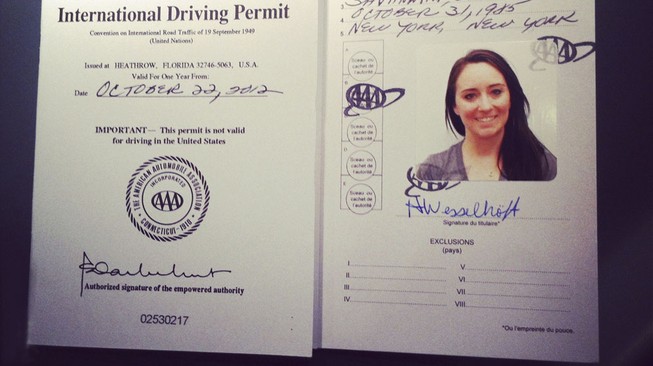 International Driving Permit
Convention on International Road Traffic of 19 September 1949
(United Nations)
Issued at HEATHROW, FLORIDA 32746-5063, U.S.A.
Valid For One Year From:
Date OCTOBER 22, 2012
IMPORTANT— This permit is not valid
for driving in the United States
THE AMERICAN AUTOMOBILE ASSOCIATION
INCORPORATED
AAA
CONNECTICUT-1910
Authorized signature of the empowered authority
02530217
OCTOBER 31, 1985
NEW YORK, NEW YORK
AAA
Sceau ou
cachet de
l'autorité
AAA
Sceau ou
cachet de
l'autorité
Sceau ou
cachet de
l'autorité
Sceau ou
cachet de
l'autorité
AAA
HWesselhöft
Signature du titulaire*
EXCLUSIONS
(pays)
I
II
III
IV
V
VI
VII
VIII
*Ou l'empreinte du pouce.